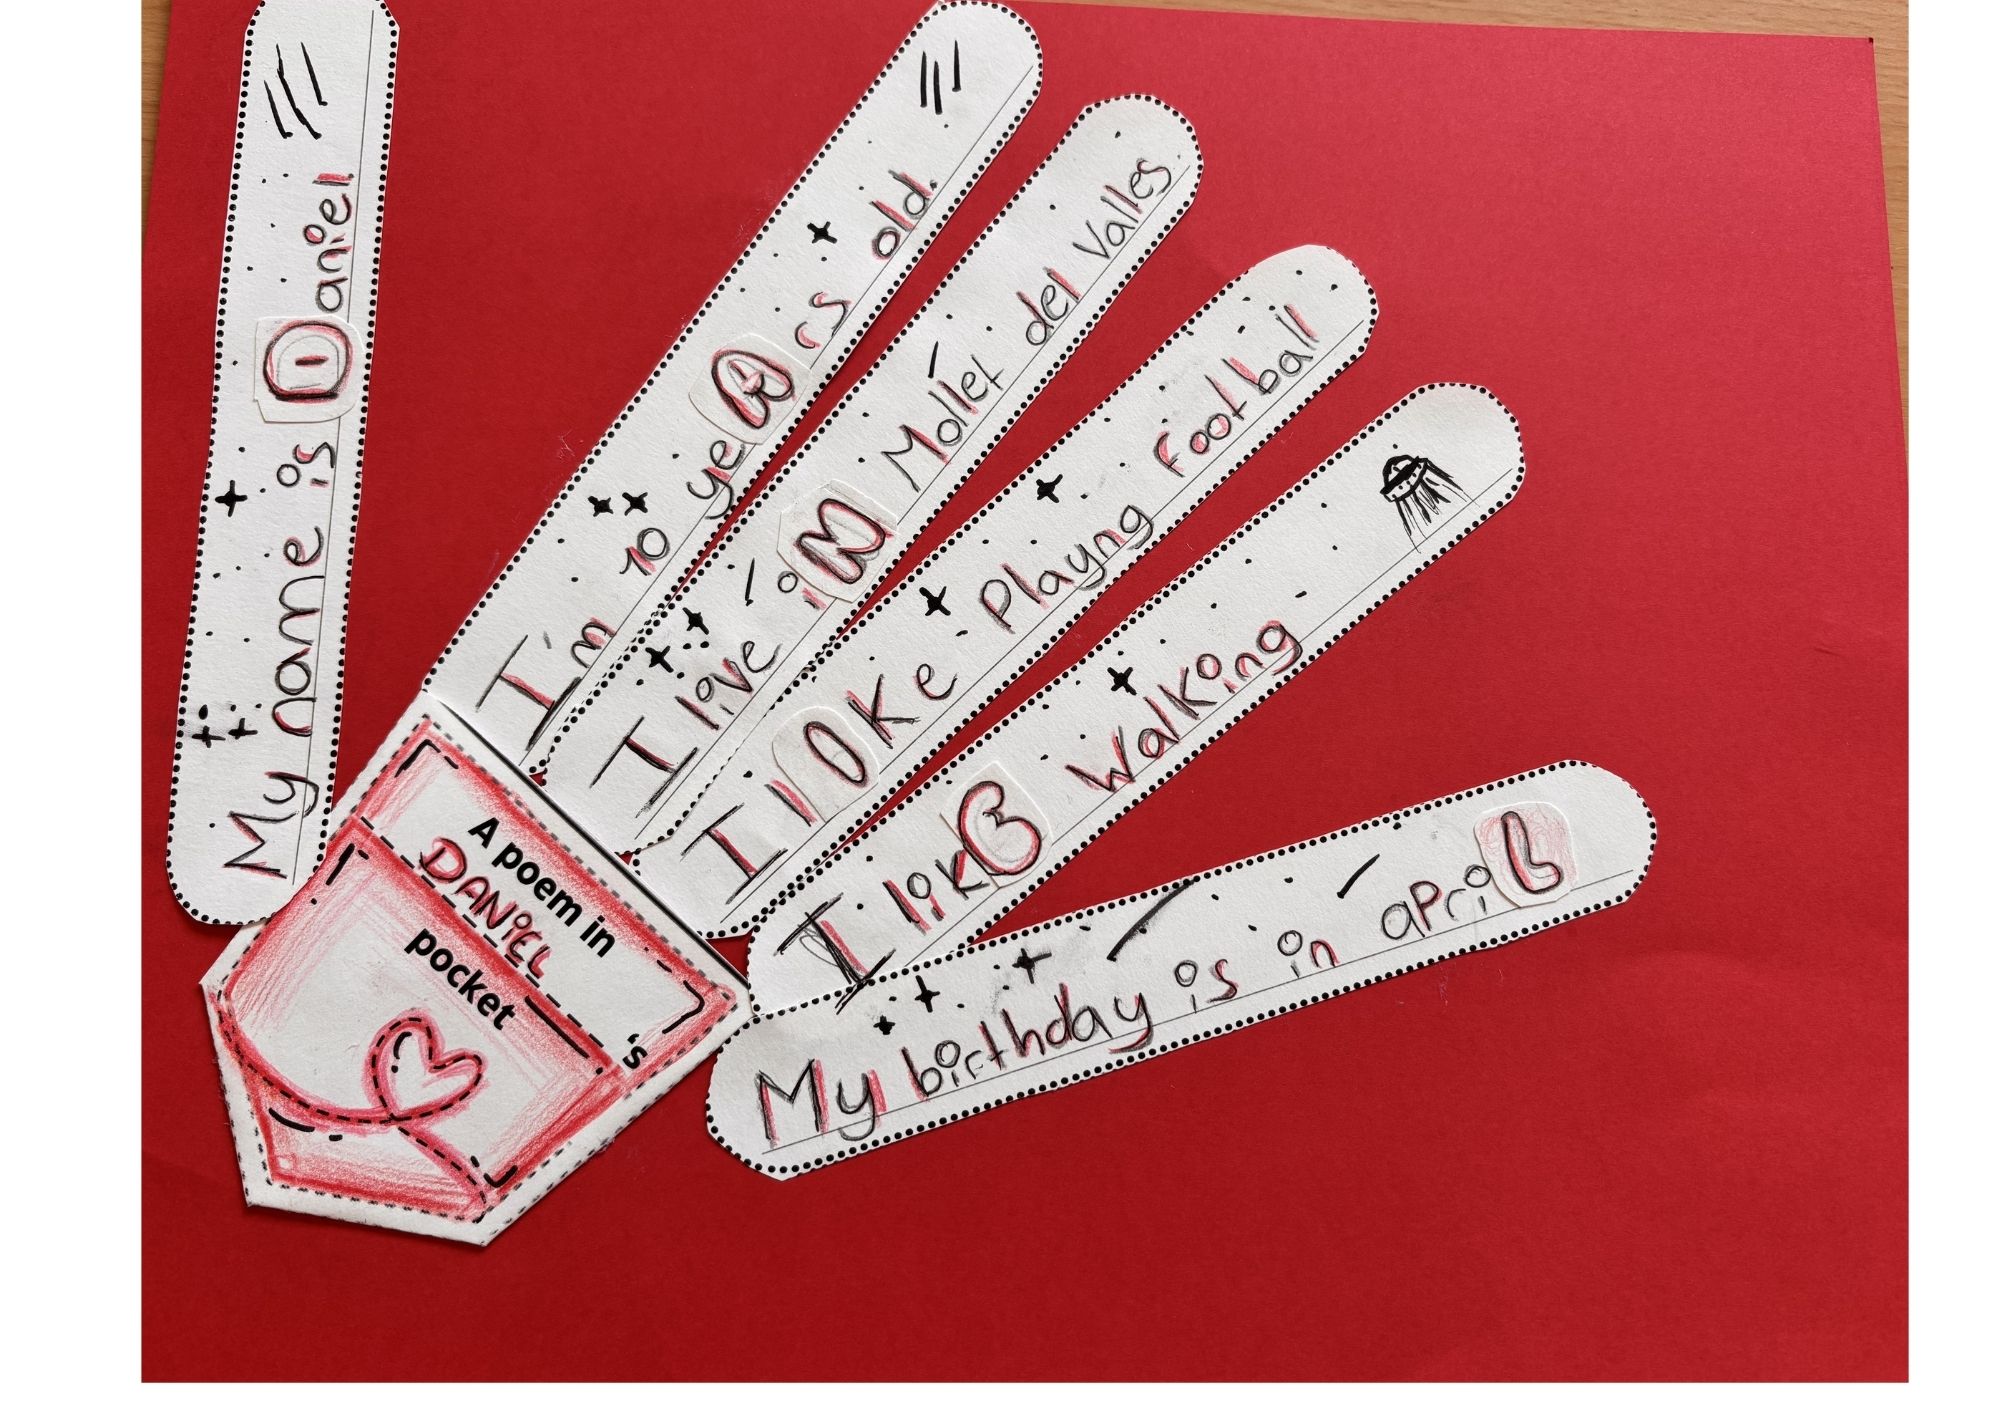 My name is Daniel.
I'm 10 yeArs old.
I live iN Mollet del Valles
I lIke Playng Football
I likE Walking
My birthday is in apriL
A poem in
DANiEL 's
pocket